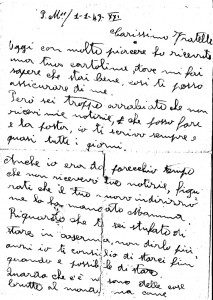 P.M. 1-1-43-XXI
Carissimo Fratello
Oggi con molto piacere ho ricevuto
una tua cartolina, dove mi fai
sapere che stai bene, così ti posso
assicurare di me.
Però sei troppo arrabbiato che non
ricevi mie notizie, che posso fare
io la posta, io ti scrivo sempre e
quasi tutti i giorni.
Anche io era da parecchio tempo
che non ricevevo tue notizie, figu
rati che il tuo nuovo indirizzo
me lo ha mandato Mamma
Riguardo che ti sei stufato di
stare in caserma, non dirlo più
anzi io ti consiglio di starci fin
quando è possibile di stare.
Guarda che c'è sono delle cose
brutte al mondo, ma come